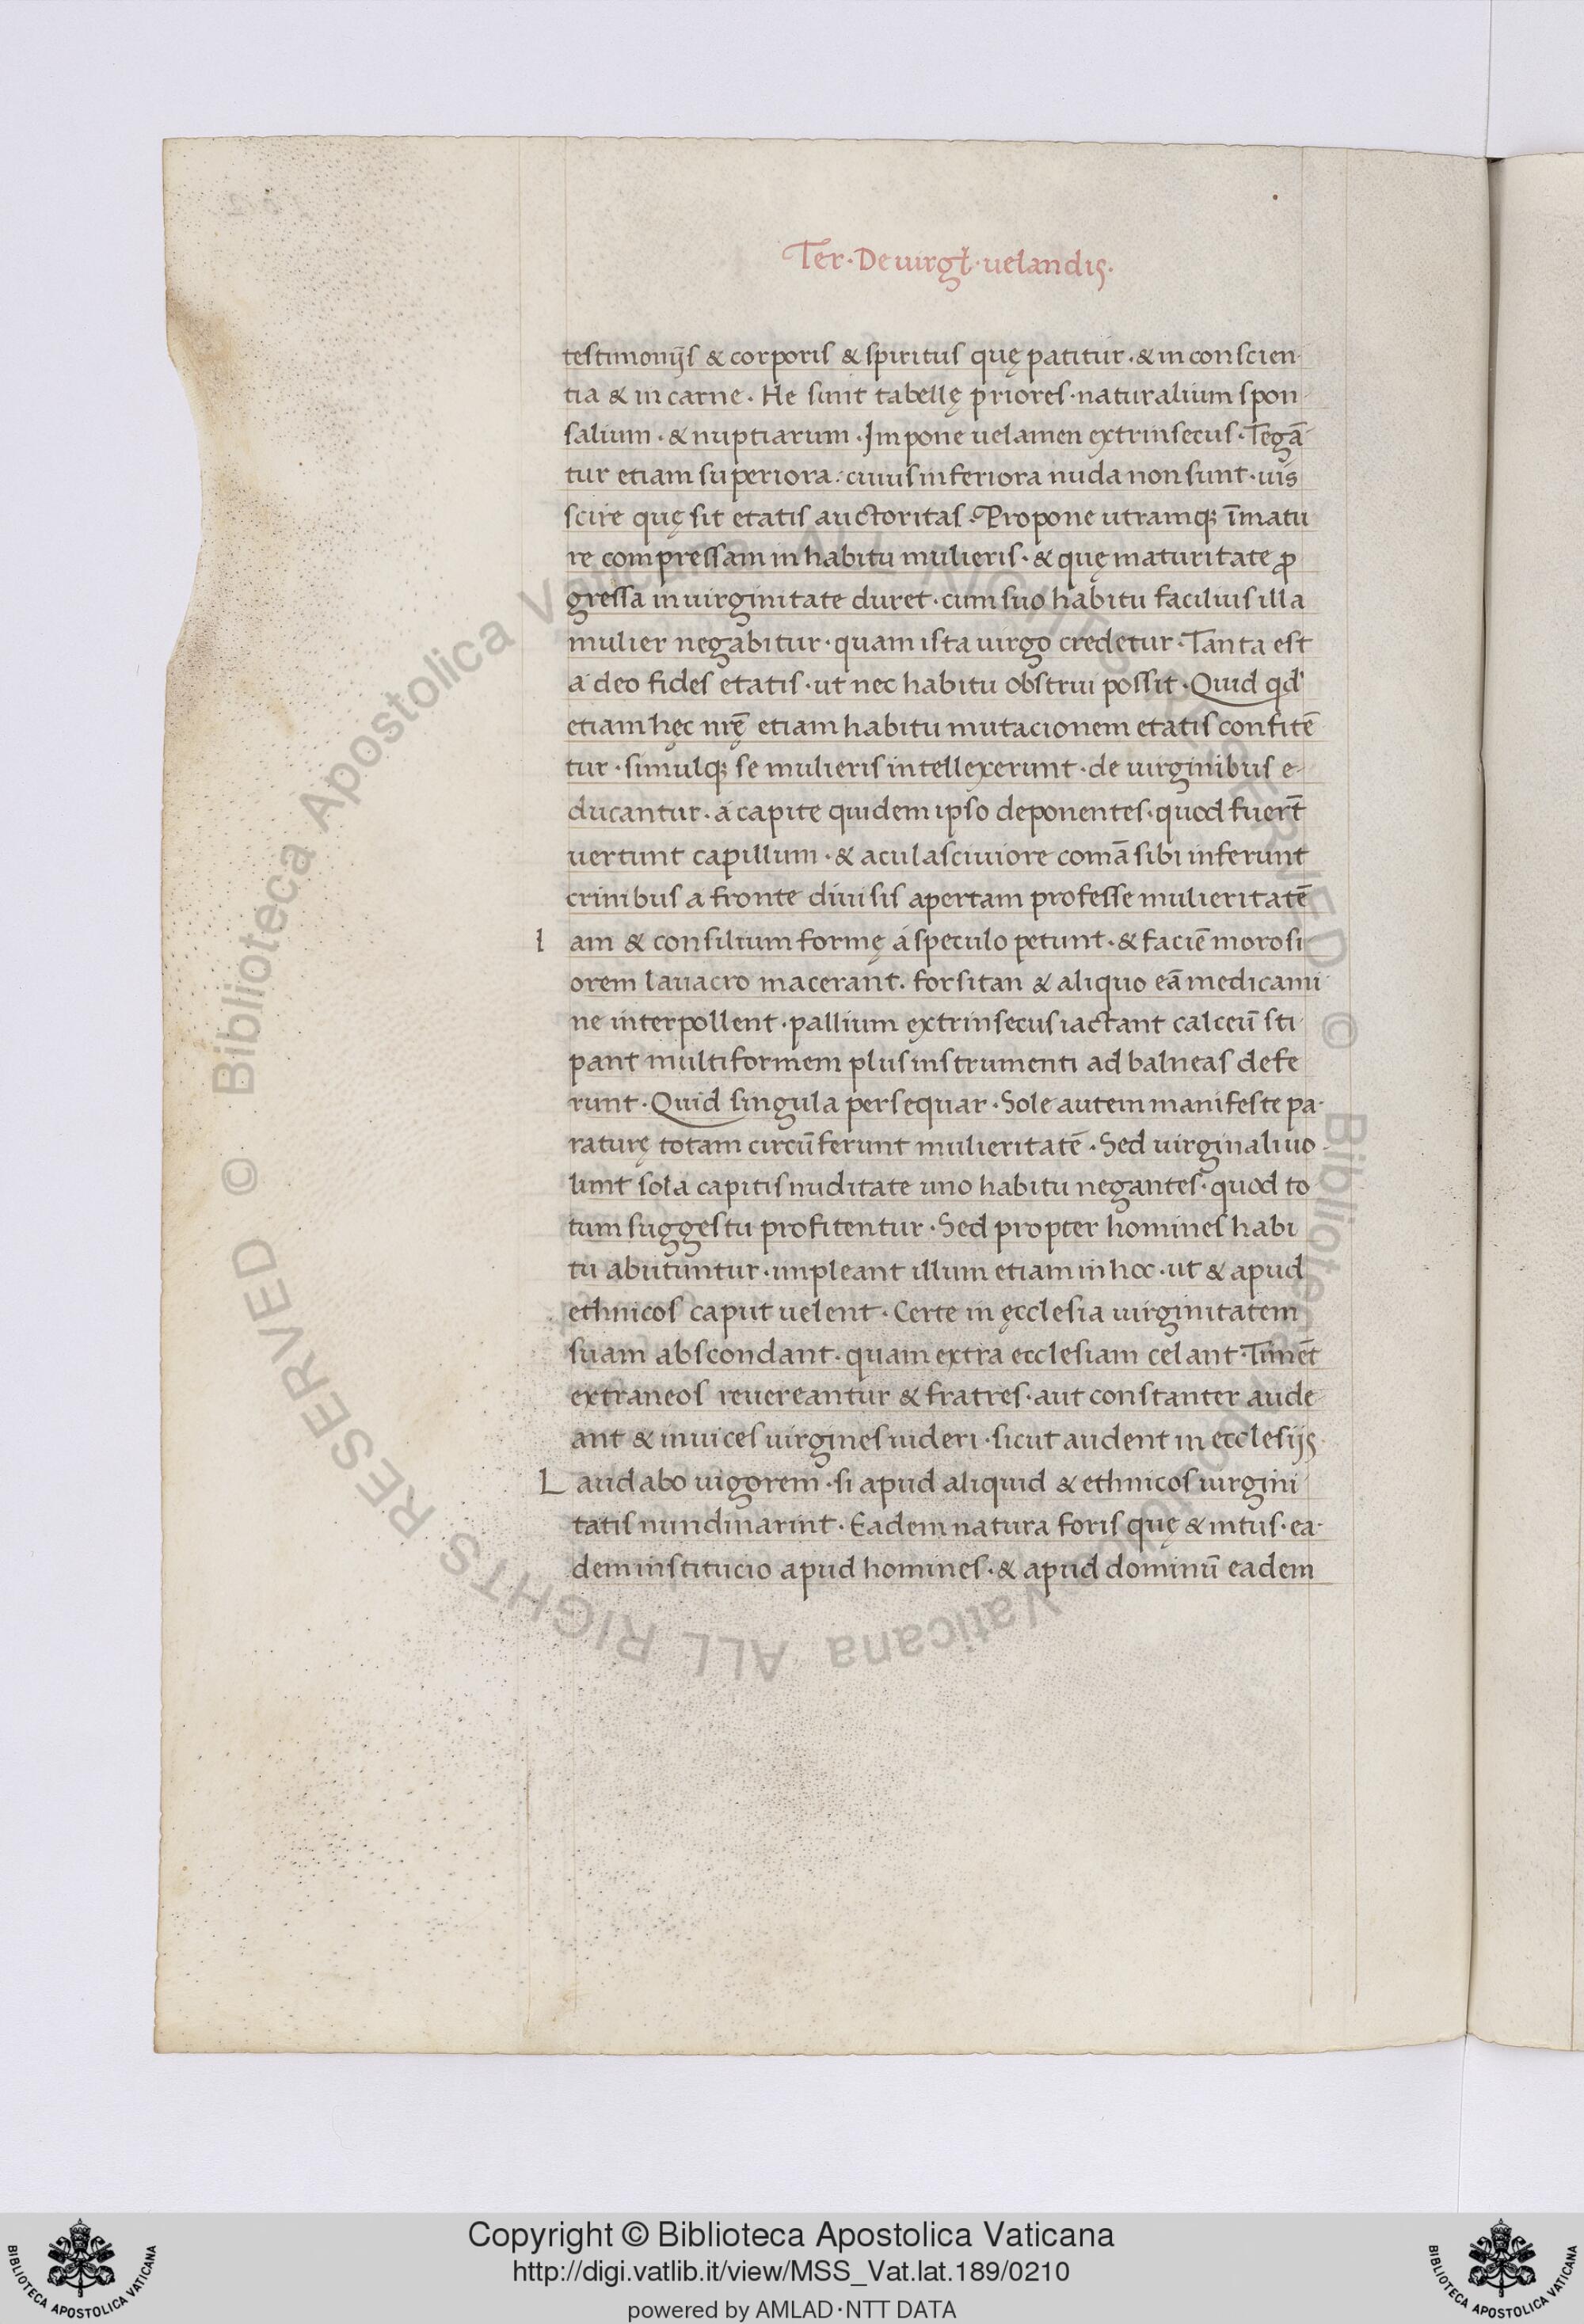 Ter · De uirgł · uelandis ·
testimonijs & corporis & spiritus quę patitur · & in conscien-
tia & in carne · He sunt tabellę priores · naturalium spon-
salium · & nuptiarum · Impone uelamen extrinsecus · Tegā-
tur etiam superiora : cuius inferiora nuda non sunt · uis
scire quę sit etatis auctoritas · Propone utramqꝫ īmatu
re compressam in habitu mulieris · & quę maturitate ꝓ
gressa in uirginitate duret · cum suo habitu facilius illa
mulier negabitur · quam ista uirgo credetur · Tanta est
a deo fides etatis · ut nec habitu obstrui possit · Quid qd'
etiam hęc nrę̄ etiam habitu mutacionem etatis confitē
tur · simulqꝫ se mulieris intellexerunt · de uirginibus e-
ducantur · á capite quidem ipso deponentes · quod fuert̄
uertunt capillum · & acu lasciuiore comā sibi inferunt
crinibus a fronte diuisis apertam professe mulieritatē
I am & consilium formę á speculo petunt · & faciē morosi-
orem lauacro macerant · forsitan & aliquo eā medicami-
ne interpollent · pallium extrinsecus iactant calceū sti-
pant multiformem plus instrumenti ad balneas defe
runt · Quid singula persequar · Sole autem manifeste pa-
raturę totam circūferunt mulieritatē · Sed uirginali uo-
lunt sola capitis nuditate uno habitu negantes · quod to
tum suggestu profitentur · Sed propter homines habi
tu abutuntur · impleant illum etiam in hoc · ut & apud
ethnicos caput uelent · Certe in ęcclesia uirginitatem
suam abscondant · quam extra ecclesiam celant · Timēt
extraneos reuereantur & fratres · aut constanter aude-
ant & in uices uirgines uideri · sicut audent in ecclesijs
L audabo uigorem · si apud aliquid & ethnicos uirgini-
tatis nundinarint · Eadem natura foris quę & intus · ea-
dem institucio apud homines · & apud dominū eadem
© Biblioteca Apostolica Vaticana ALL RIGHTS RESERVED © Biblioteca Apostolica Vaticana ALL RIGHTS RESERVED
Copyright © Biblioteca Apostolica Vaticana
http://digi.vatlib.it/view/MSS_Vat.lat.189/0210
powered by AMLAD·NTT DATA
BIBLIOTECA APOSTOLICA VATICANA
BIBLIOTECA APOSTOLICA VATICANA